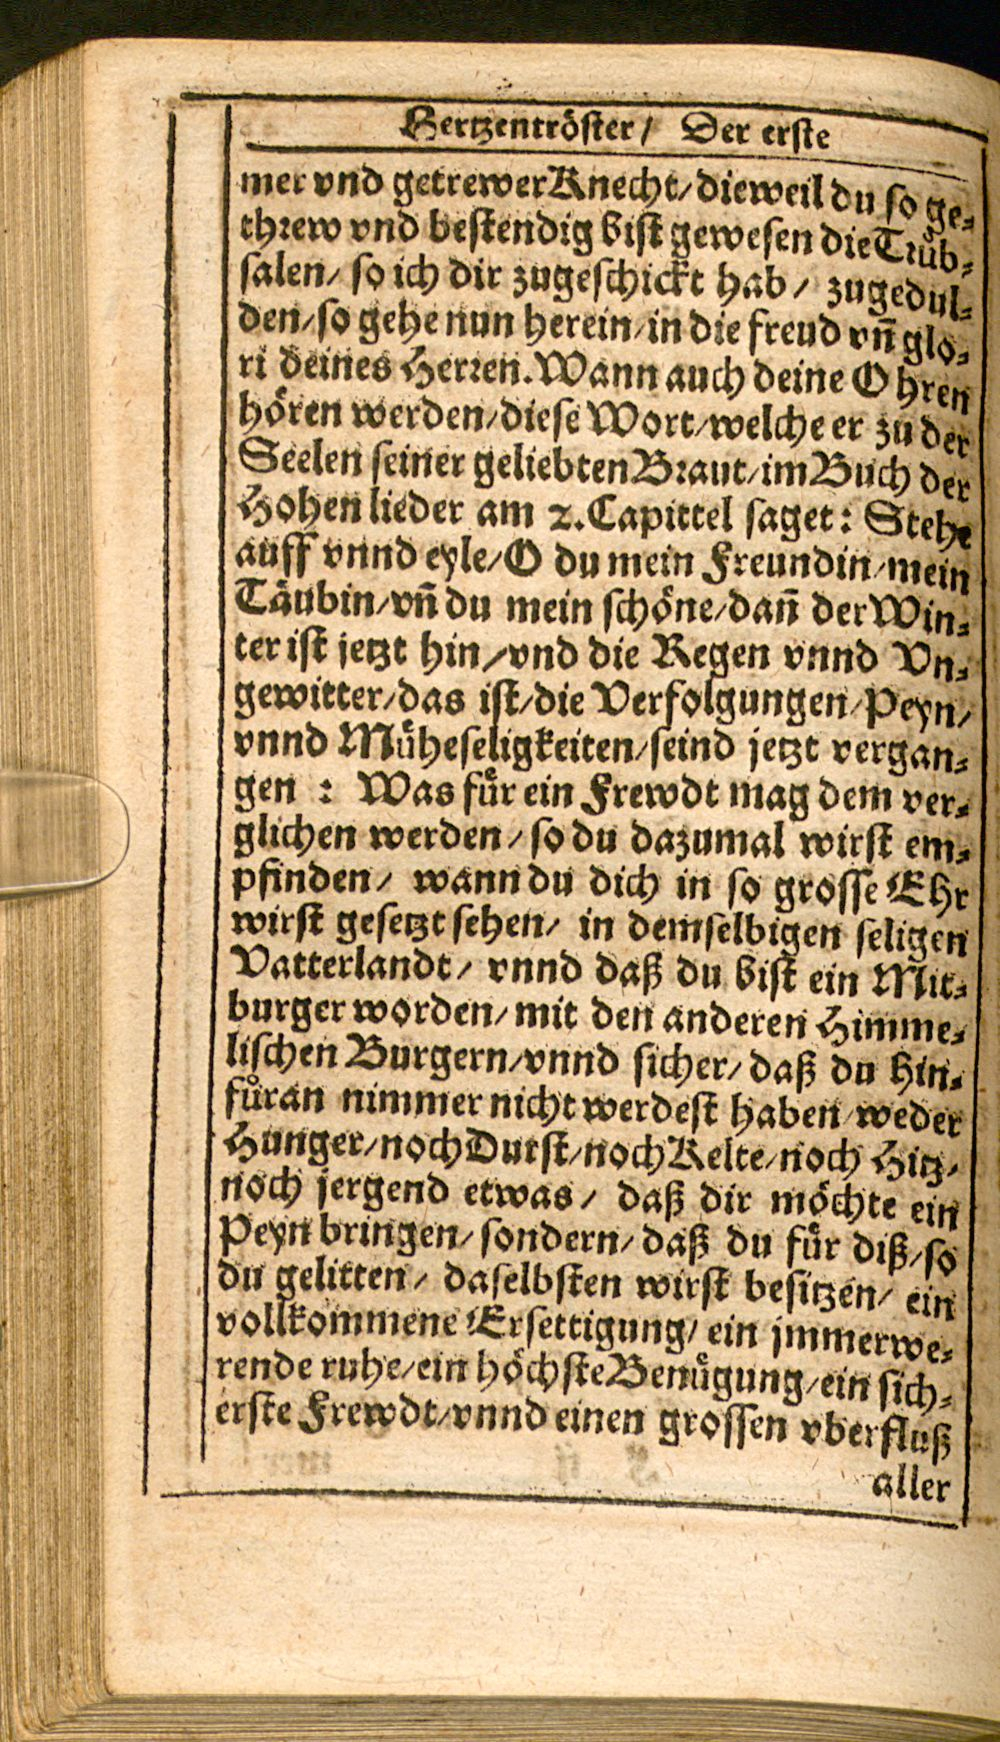 Hertzentröster / Der erste
mer vnd getrewer Knecht / dieweil du so ge⸗
threw vnd bestendig bist gewesen die Trůb⸗
salen / so ich dir zugeschickt hab / zugedul⸗
den / so gehe nun herein / in die freud vñ glo⸗
ri deines Herren. Wann auch deine Ohren
hören werden / diese Wort / welche er zu der
Seelen seiner geliebten Braut / im Buch der
Hohenlieder am 2. Capittel saget: Stehe
auff vnnd eyle / O du mein Freundin / mein
Täubin / vñ du mein schöne / dañ der Win⸗
ter ist jetzt hin / vnd die Regen vnnd Vn⸗
gewitter / das ist / die Verfolgungen / Peyn /
vnnd Müheseligkeiten / seind jetzt vergan⸗
gen : Was für ein Frewdt mag dem ver⸗
glichen werden / so du dazumal wirst em⸗
pfinden / wann du dich in so grosse Ehr
wirst gesetzt sehen / in demselbigen seligen
Vatterlandt / vnnd daß du bist ein Mit⸗
burger worden / mit den anderen Himme⸗
lischen Burgern / vnnd sicher / daß du hin⸗
fůran nimmer nicht werdest haben / weder
Hunger / noch Durst / noch Kelte / noch Hitz /
noch jergend etwas / daß dir möchte ein
Peyn bringen / sondern / daß du für diß / so
du gelitten / daselbsten wirst besitzen / ein
vollkommene Ersettigung / ein jmmerwe⸗
rende ruhe / ein höchste Benügung / ein sich⸗
erste Frewdt / vnnd einen grossen vberfluß
aller